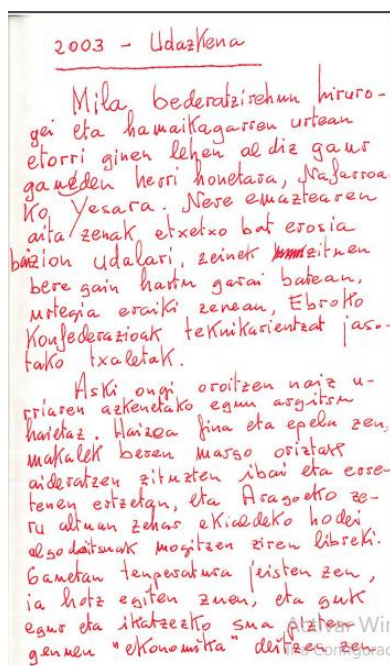 2003 - Udazkena
Mila bederatzirehun hiruro-
gei eta hamaikagarren urtean
etorri ginen lehen aldiz gaur
gauden herri honetara, Nafarroa-
ko Yesara. Nere emaztearen
aita zenak etxetxo bat erosia
baizion udalari, zeinek zituen
bere gain hartu garai batean,
urtegia eraiki zenean, Ebroko
Konfederazioak teknikarientzat jaso-
tako txaletak.
Aski ongi oroitzen naiz u-
rriaren azkenetako egun argitsu
haietaz. Haizea fina eta epela zen,
makalek beren margo oriztak
aideratzen zituzten ibai eta erre-
tenen ertzetan, eta Aragoeko ze-
ru altuan zehar ekialdeko hodei
algodoitsuak mogitzen ziren libreki.
Gauetan tenperatura jeisten zen,
ia hotz egiten zuen, eta guk
egur eta ikatzezko sua pizten
genuen "ekonomika" deitzen zen
Activar Win